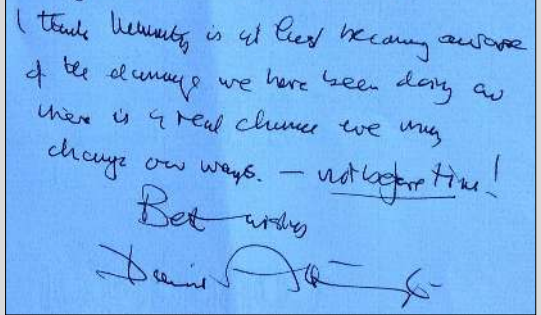 I think humanity is at last becoming aware
of the damage we have been doing and
there is a real chance we may
change our ways. — not before time!
Best wishes
David